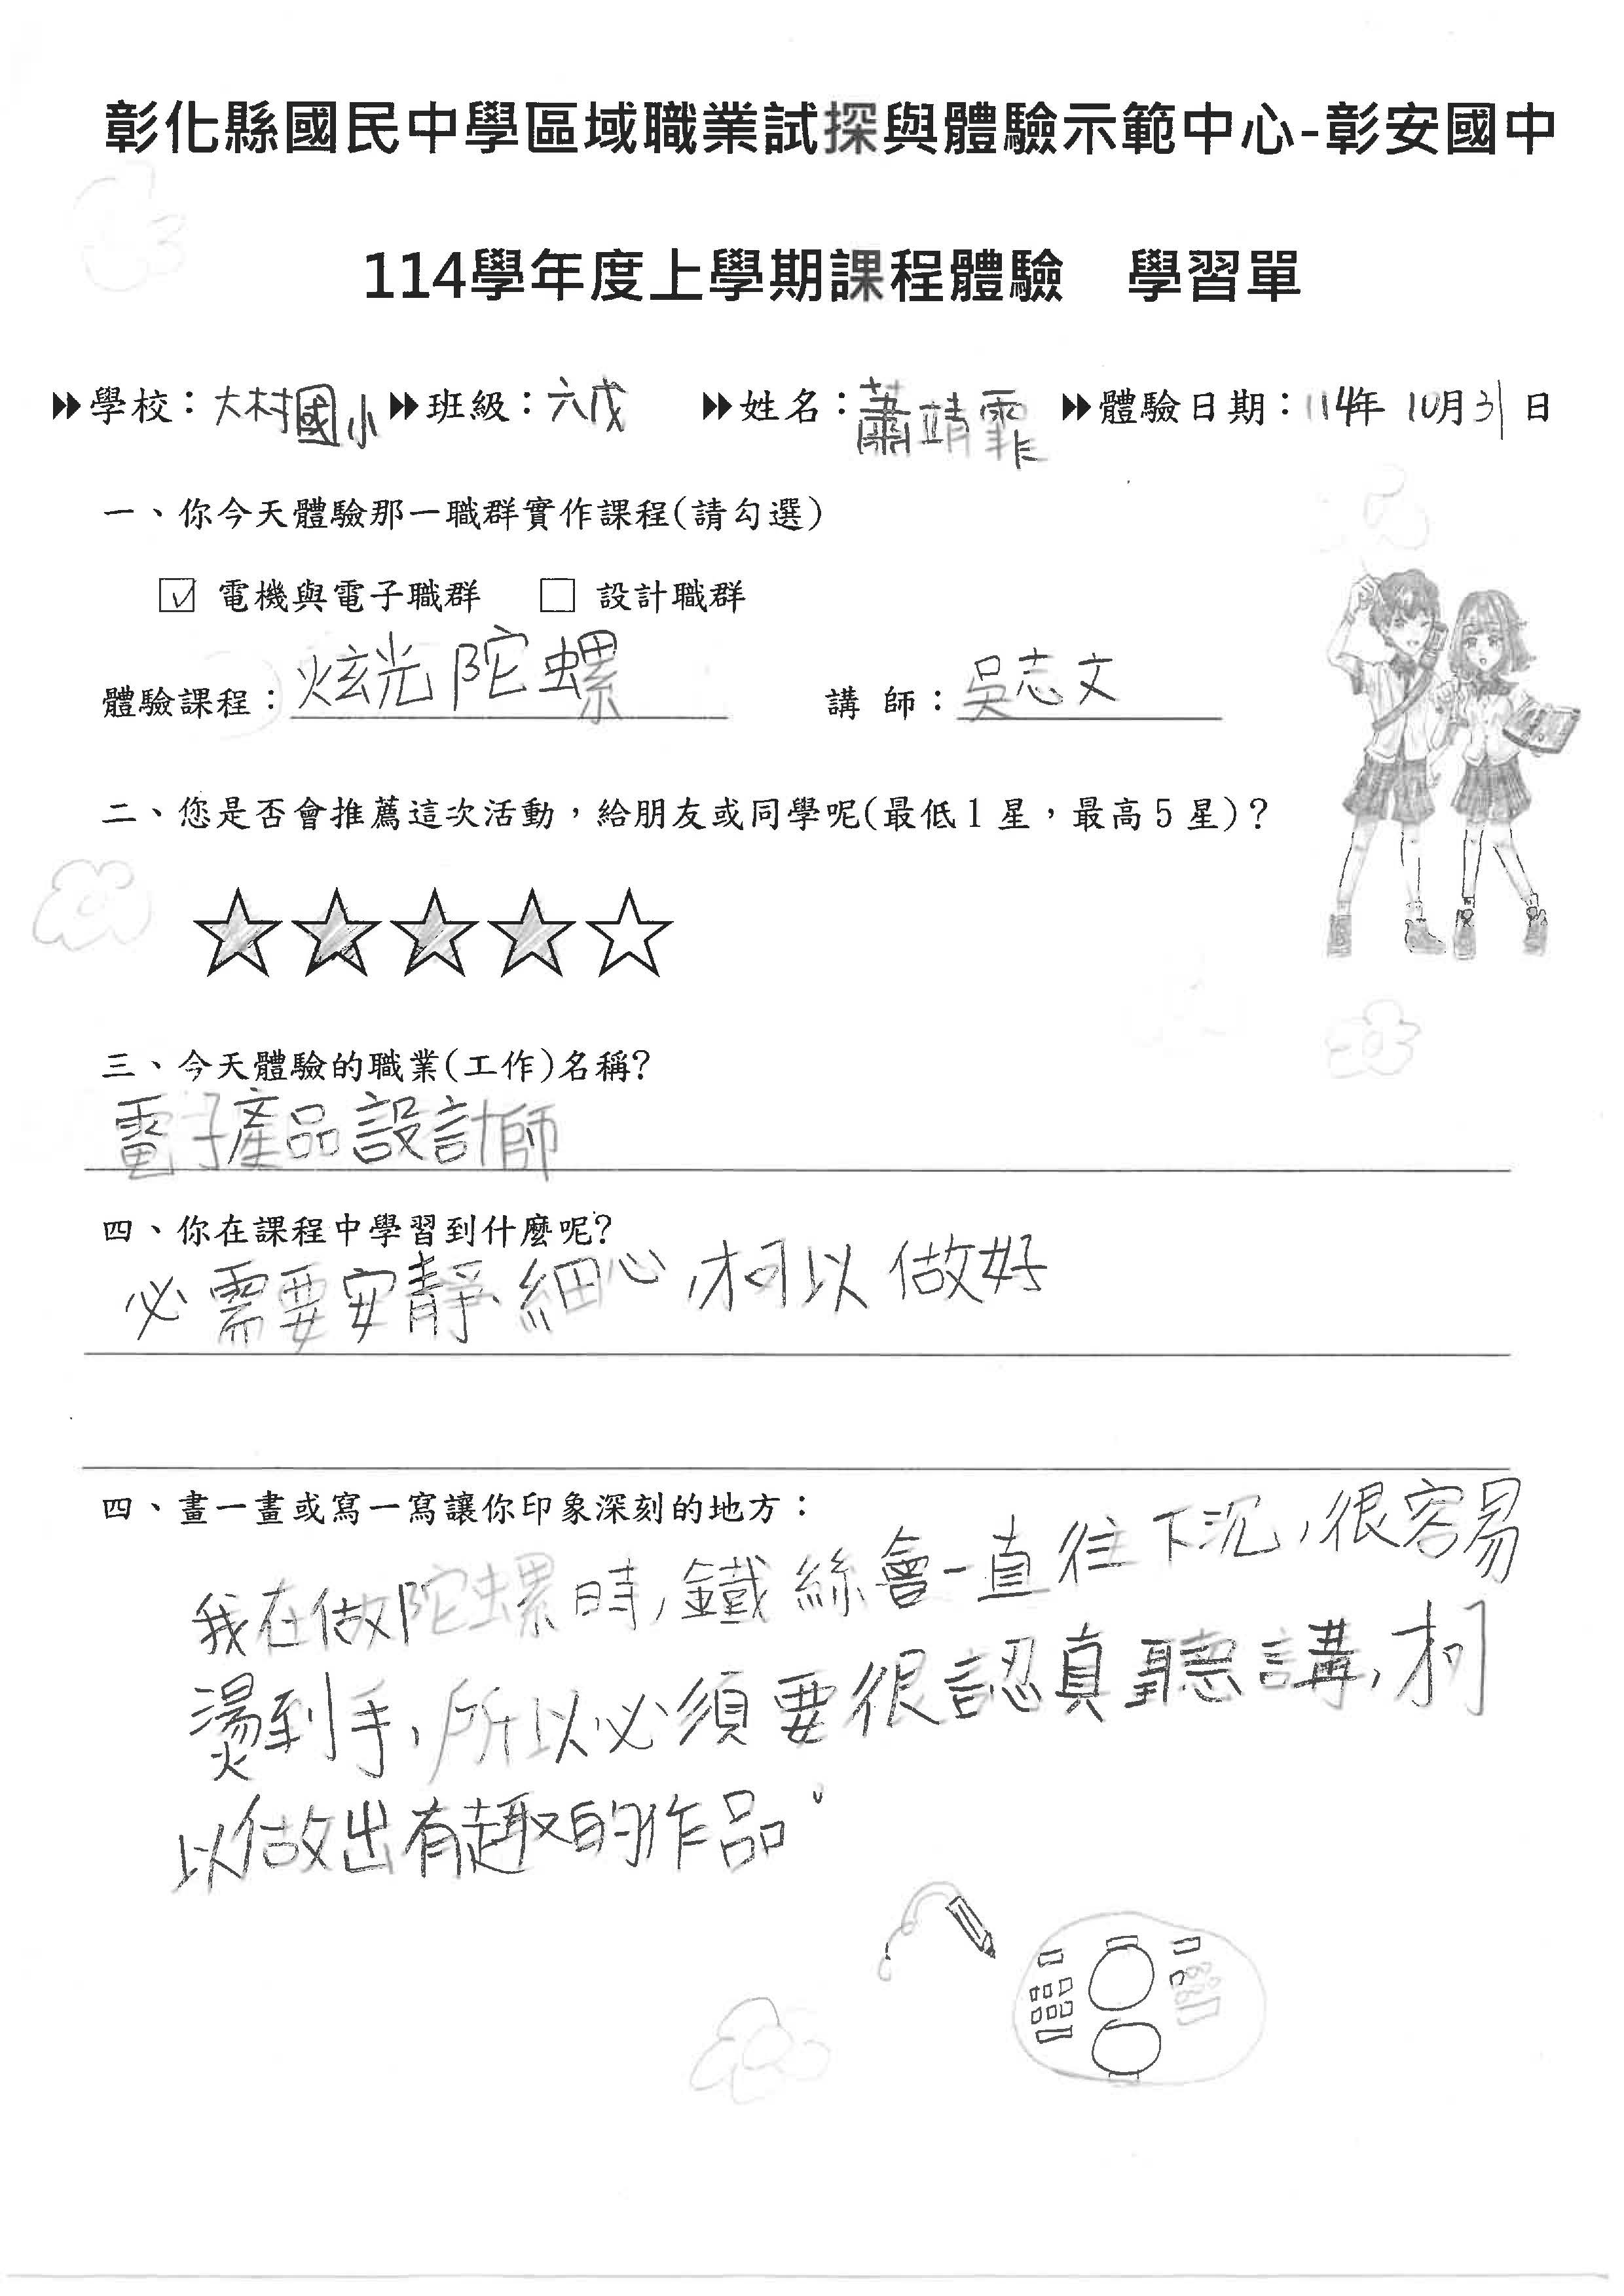 彰化縣國民中學區域職業試探與體驗示範中心-彰安國中
114學年度上學期課程體驗　學習單
學校：大村國小 班級：六戊 姓名：蕭靖霏 體驗日期：114年10月31日
一、你今天體驗那一職群實作課程(請勾選)
☑ 電機與電子職群 □ 設計職群
體驗課程：炫光陀螺 講 師：吳志文
二、您是否會推薦這次活動，給朋友或同學呢(最低1星，最高5星)？
三、今天體驗的職業(工作)名稱?
電子產品設計師
四、你在課程中學習到什麼呢?
必需要安靜、細心，才可以做好
四、畫一畫或寫一寫讓你印象深刻的地方：
我在做陀螺時，鐵絲會一直往下沉，很容易
燙到手，所以必須要很認真聽講，才可
以做出有趣的作品。